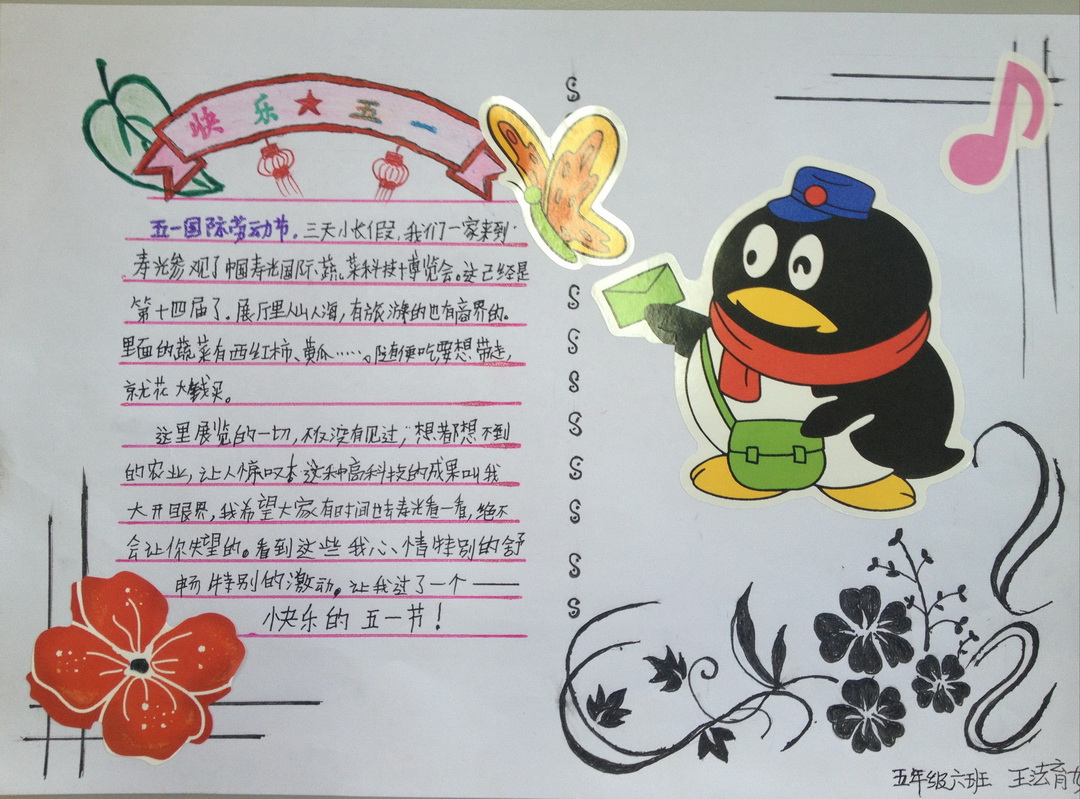 快乐★五一
五一国际劳动节。三天小长假,我们一家来到
寿光参观了中国寿光国际蔬菜科技博览会。这已经是
第十四届了。展厅里人山人海,有旅游的也有商界的。
里面的蔬菜有西红柿、黄瓜……。随便吃要想带走,
就花大钱买。
这里展览的一切,不仅没有见过,想都想不到
的农业,让人惊叹。这种高科技的成果叫我
大开眼界,我希望大家有时间也去寿光看一看,绝不
会让你失望的。看到这些我心情特别的舒
畅特别的激动。让我过了一个——
快乐的五一节!
五年级六班 王法育